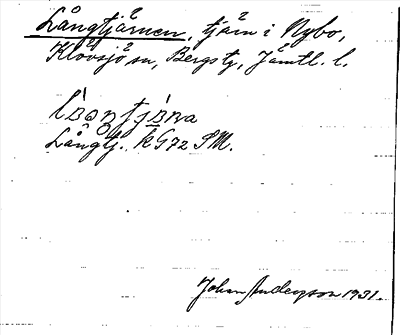 Långtjärnen, tjärn i Nybo,
Klövsjö sn, Bergs tg, Jämtl. l.
Långtj. k G72 SM.
Johan Anderson 1931.